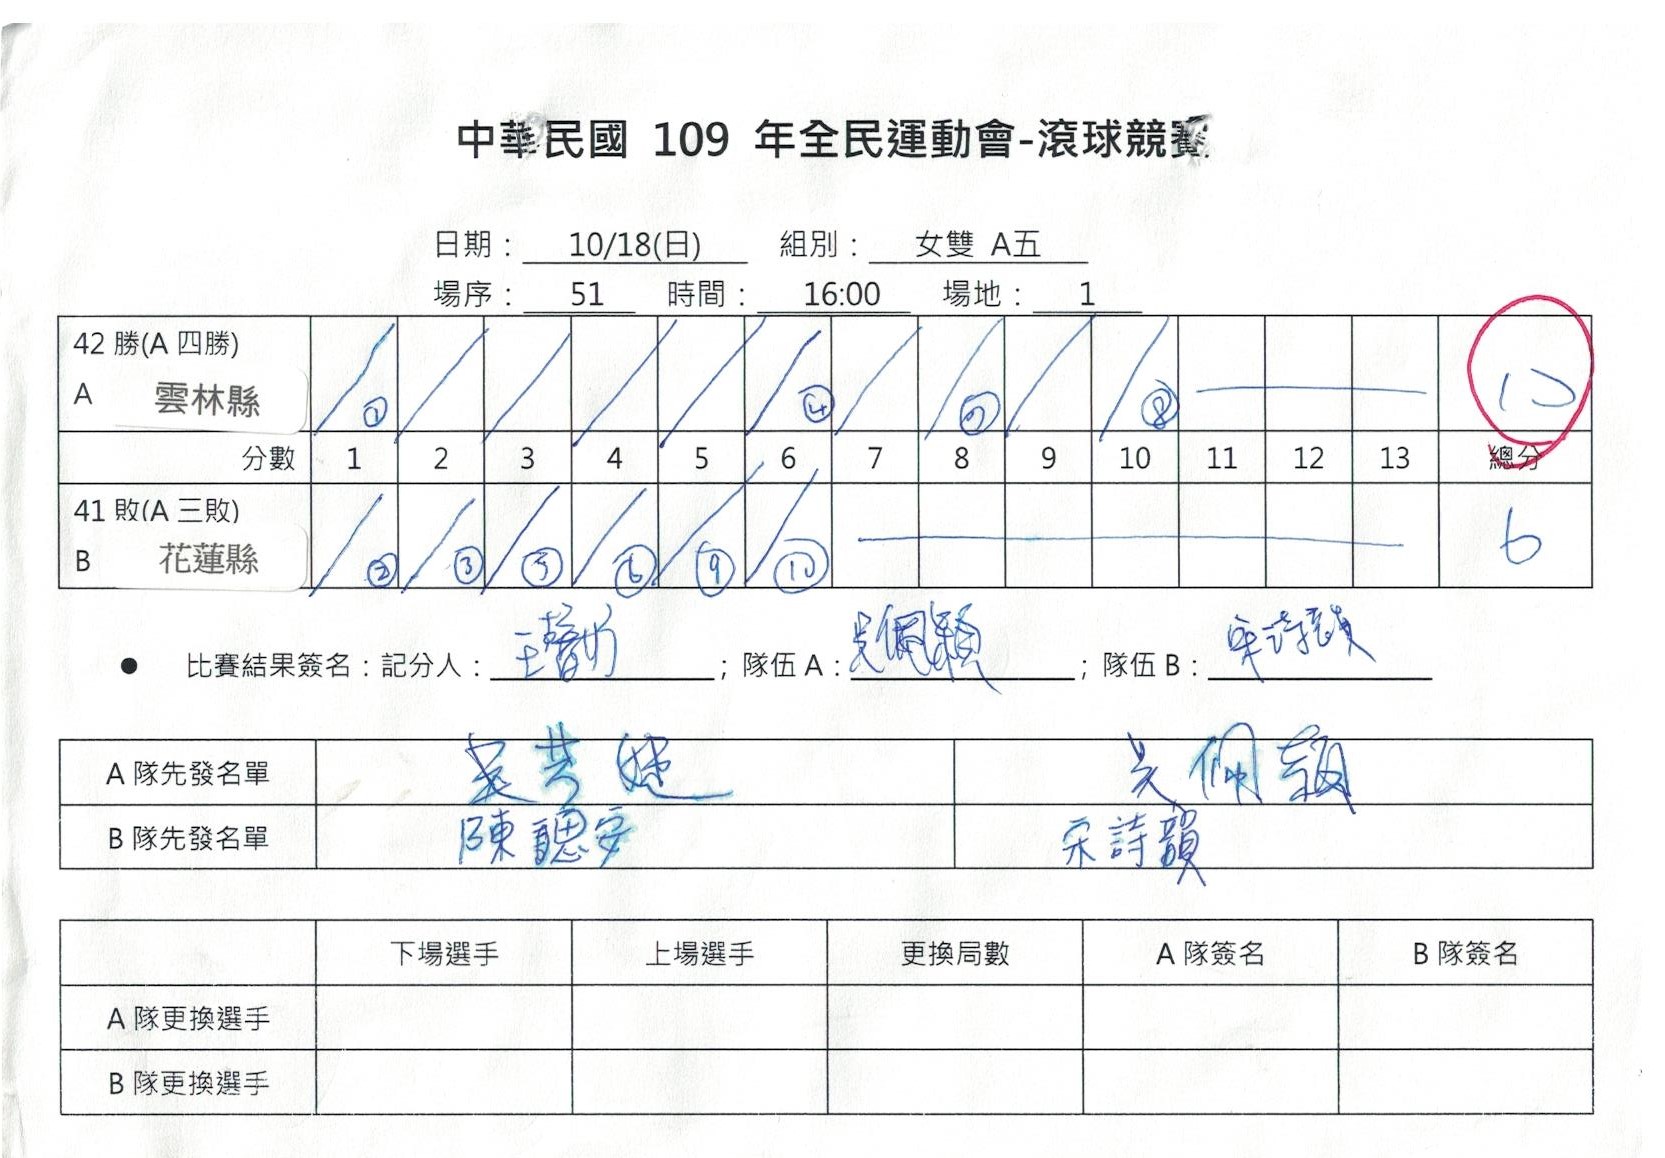 中華民國 109 年全民運動會-滾球競賽
日期： 10/18(日) 組別： 女雙 A五
場序： 51 時間： 16:00 場地： 1
42 勝(A 四勝)
A 雲林縣 ① ④ ⑦ ⑧ 10
分數 1 2 3 4 5 6 7 8 9 10 11 12 13 總分
41 敗(A 三敗)
B 花蓮縣 ② ③ ⑤ ⑥ ⑨ ⑩ 6
● 比賽結果簽名：記分人： ；隊伍 A：吳佩穎 ；隊伍 B：宋詩韻
A 隊先發名單 吳 吳佩穎
B 隊先發名單 陳聰安 宋詩韻
下場選手 上場選手 更換局數 A 隊簽名 B 隊簽名
A 隊更換選手
B 隊更換選手